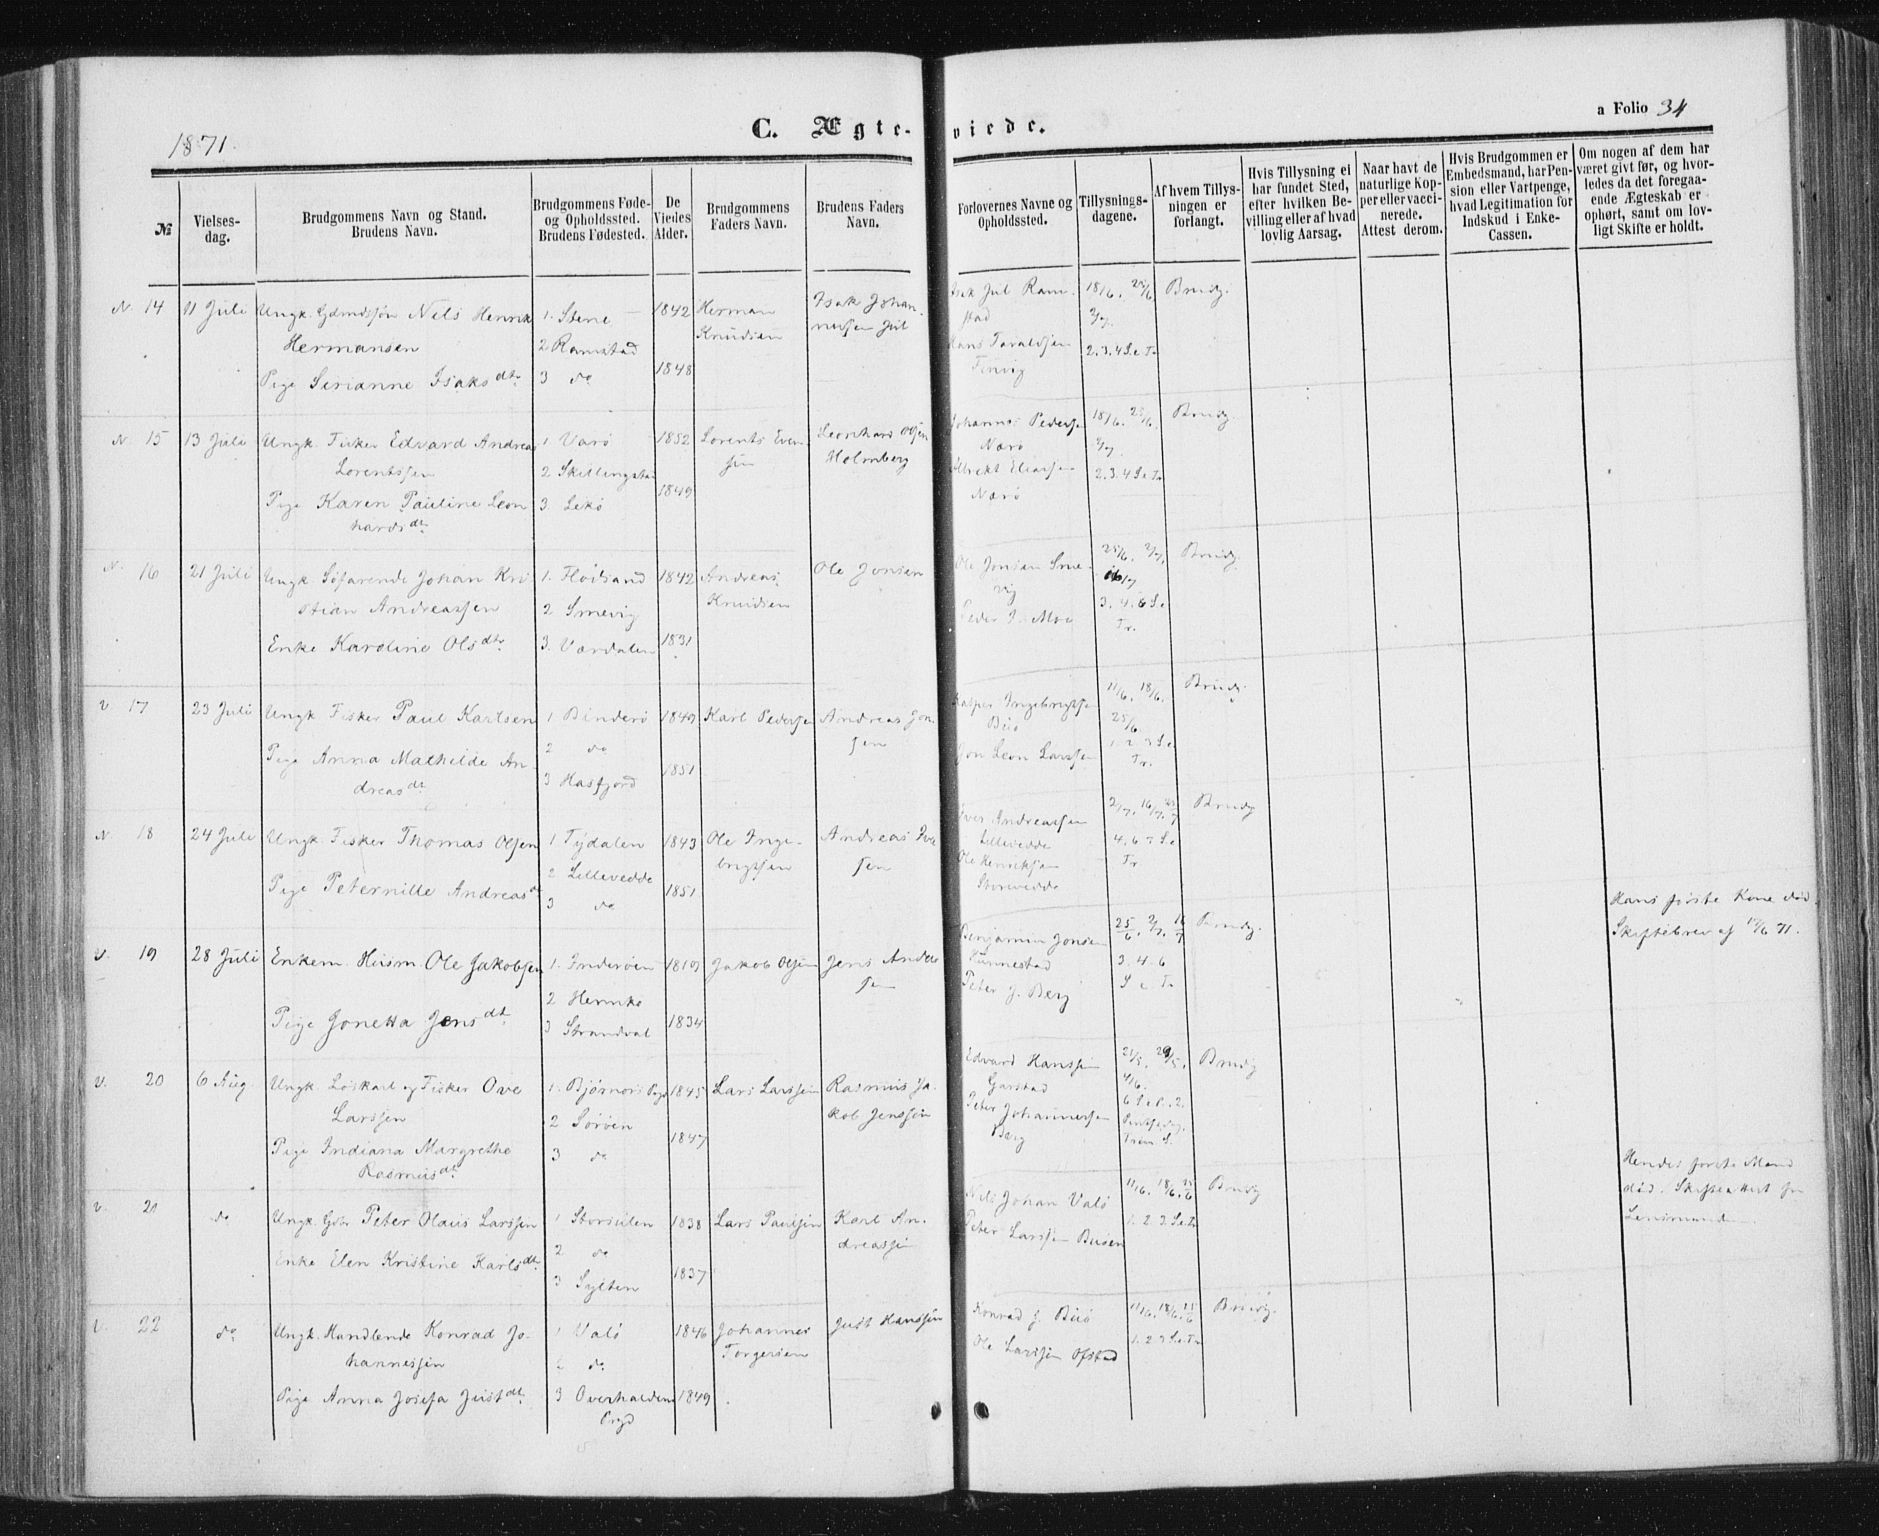 1871.
C. Ægte-viede.
a Folio 34
№
Vielses-dag.
Brudgommens Navn og Stand.
Brudens Navn.
Brudgommens Føde-
og Opholdssted.
Brudens Fødested.
De
Viedes
Alder.
Brudgommens
Faders Navn.
Brudens Faders
Navn.
Forlovernes Navne og
Opholdssted.
Tillysnings-
dagene.
Af hvem Tillys-
ningen er
forlangt.
Hvis Tillysning ei
har fundet Sted,
efter hvilken Be-
villing eller af hvad
lovlig Aarsag.
Naar havt de
naturlige Kop-
per eller vacci-
nerede.
Attest derom.
Hvis Brudgommen er
Embedsmand, har Pen-
sion eller Vartpenge,
hvad Legitimation for
Indskud i Enke-
Cassen.
Om nogen af dem har
været givt før, og hvor-
ledes da det foregaa-
ende Ægteskab er
ophørt, samt om lov-
ligt Skifte er holdt.
N. 14
11 Juli
Ungk. Nels Henrik
Hermansen
Pige Serianne Isaksdtr
1. Stene
2 Ramstad
3 do
1842
1848
Herman
Knudsen
Isak Johan-
nessen Jul
Isak Jul Ram-
stad
Hans Taraldsen
Finvig
18/6. 25/6
2/7.
2.3.4 S.e Tr
Brudg.
N. 15
13 Juli
Ungk. Fisker Edvard Andreas
Lorentssen
Pige Karen Pauline Leon
hardsdtr
1 Varø
2 Skillingstad
3. Lekø
1852
1849
Lorents Even
sen
Leonhard Olsen
Holmberg
Johannes Pedersen
Nærø
Albrekt Eliassen
Nærø
18/6. 25/6.
2/7.
2.3.4 S.e.Tr.
Brudg.
N. 16
21 Juli
Ungk Søfarende Johan Kri
stian Andreassen
Enke Karoline Olsdtr
1. Flødsand
2 Smevig
3. Værdalen
1842
1831
Andreas
Knudsen
Ole Jonsen
Ole Jonsen Sme-
vig
Peder J. Moe
25/6. 2/7.
16/7
3.4.6 S.e
Tr.
Brudg.
V 17
23 Juli
Ungk Fisker Paul Karlsen
Pige Anna Mathilde An-
dreasdtr
1 Binderø
2 do
3 Hasfjord
1849
1851
Karl Pedersen
Andreas Jon-
sen
Kasper Ingebrigtsen
Buø
Jon Leon Larssen
11/6. 18/6.
25/6
1 2 3 S.e
Tr.
Brudg.
N 18
24 Juli
Ungk. Fisker Thomas Olsen
Pige Peternille Andreasdtr
1 Tydalen
2 Lillevedde
3 do
1843
1851
Ole Inge-
brigtsen
Andreas Iver
sen
Iver Andreassen
Lillevedde
Ole Henriksen
Storvedde
2/7. 16/7. 23/7
4.6 7 S.e
Tr
Brudg
V. 19
28 Juli
Enkem. Husm. Ole Jakobsen
Pige Jonetta Jensdtr.
1. Inderøen
2 Hernke
3 Strandval
1819
1834
Jakob Olsen
Jens Ander
sen
Benjamin Jonsen
Hunnestad
Peter J. Berg
25/6. 2/7. 16/7
3.4.6
S e Tr
Brudg.
Hans første Kone død.
Skiftebrev af 17/6 71.
V. 20
6 Aug.
Ungk. Løskarl og Fisker Ove
Larssen
Pige Indiana Margrethe
Rasmusdtr.
1. Bjørnørs Prgd
2 Sørøen
3 do
1845
1847
Lars Larssen
Rasmus Ja-
kob Jenssen
Edvard Hanssen
Garstad
Peter Johannessen
Berg
21/5. 29/5.
4/6.
Brudg
V. 21
do
Ungk. Peter Olaus Larssen
Enke Elen Kristine Karlsdtr.
1 Storsulen
2 do
3 Sylten
1838
1837
Lars Paulsen
Karl An-
dreassen
Nils Johan Valø
Peter Larssen Buøen
11/6. 18/6. 25/6
1. 2 3. S.e.Tr
Brudg
Hendes første Mand
død. Skifteattest fra
Lensmanden.
V. 22
do
Ungk. Handlende Konrad Jo-
hannessen
Pige Anna Josefa Justdtr.
1 Valø
2 do
3 Overhalden
Prgd
1846
1849
Johannes
Torgersen
Just Hanssen
Konrad J. Buø
Ole Larssen Ofstad
11/6. 18/6. 25/6
1. 2 3 S.e.Tr
Brudg.